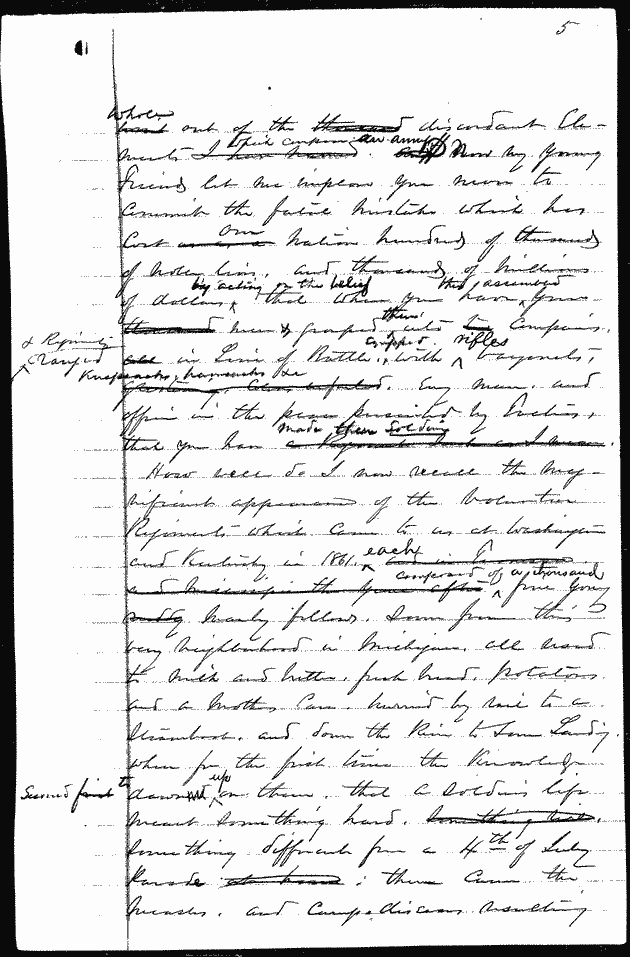 5
whole
out of the thousand discordant Ele-
which compose an army
ments I have named. and Now my young
Friends let me implore you never to
commit the fatal mistake which has
our
Cost nation hundreds of thousands
of noble lives, and thousands of Millions
by acting on the belief this assembled
of dollars, that when you have your
them
thousand men & grouped into Companies,
& Regiments equipped rifles
ranged in Line of Battle, with bayonets,
Knapsacks, haversacks &c
Every man, and
officer in the place prescribed by Tactics,
made them Soldiers
that you have a Regiment such as I mean.
How well do I now recall the mag-
nificent appearance of the Volunteer
Regiments which came to us at Washington
each
and Kentucky in 1861,
composed of a thousand
and Mississippi the year after fine young
ruddy manly fellows, some from this
very neighborhood in Michigan, all used
to milk and butter, fresh bread, potatoes
and a mothers Care, hurried by rail to a
Steamboat, and down the River to some Landing,
when for the first time the Knowledge
Seemed first to up
dawn on them, that a soldiers life
meant something hard, something
something different from a 4th of July
Parade : then came the
measles, and Camp-diseases resulting